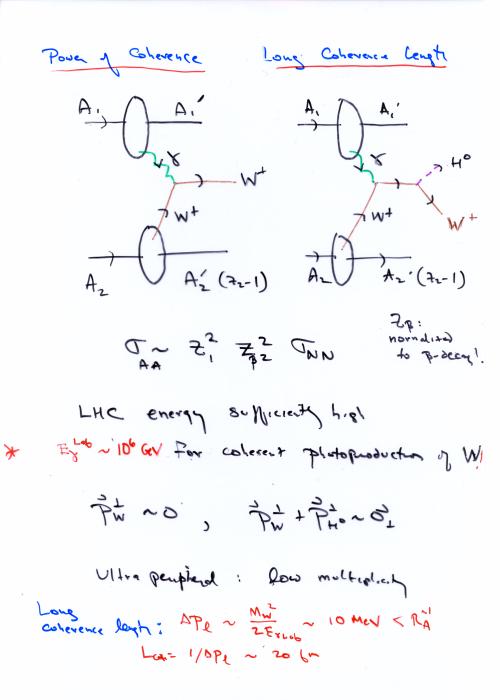 Power of Coherence
Long Coherence Length
A₁ A₁′
γ
W⁺
W⁺
A₂ A₂′ (Z₂-1)
A₁ A₁′
γ
H⁰
W⁺
W⁺
A₂ A₂′ (Z₂-1)
σ_AA ~ Z₁² Z_β2² σ_NN
Z_β:
normalized
to β-decay!
LHC energy sufficiently high
* E_γ^Lab ~ 10⁶ GeV for coherent photoproduction of W!
P⃗_W^⊥ ~ 0 , P⃗_W^⊥ + P⃗_H⁰^⊥ ~ 0⃗_⊥
Ultra peripheral : low multiplicity
Long
coherence length: ΔP_ℓ ~ M_W²/2E_γLab ~ 10 MeV < R_A⁻¹
L_coh = 1/ΔP_ℓ ~ 20 fm